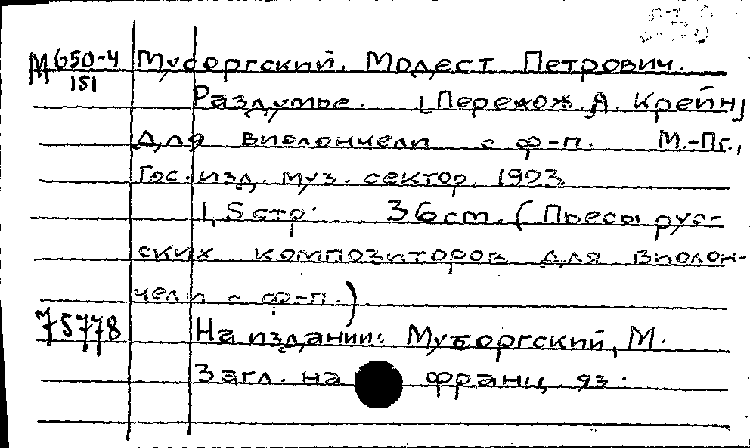 М 650-4 Мусоргский, Модест Петрович.
151
Раздумье. [Перелож. А. Крейн]
для виолончели с ф-п. М.-Пг.,
Гос. изд. муз. сектор, 1923
1, 5 стр. 36 cm. (Пьесы рус-
ских композиторов для виолон-
чели с ф-п.)
75778 На издании: Мусоргский, М.
Загл. на франц. яз.